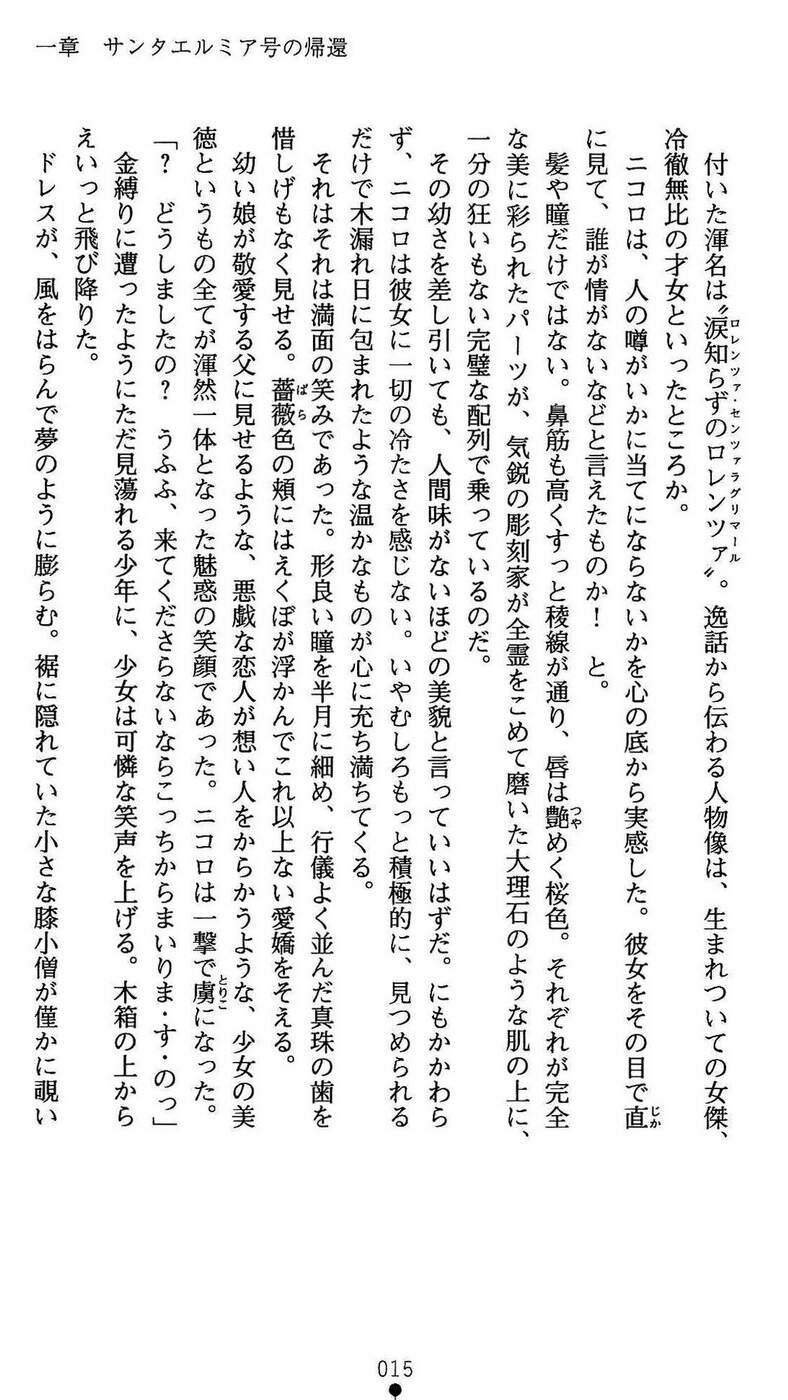 一章　サンタエルミア号の帰還
付いた渾名は〝涙知らずのロレンツァ〟。逸話から伝わる人物像は、生まれついての女傑、
ロレンツァ・センツァラグリマール
冷徹無比の才女といったところか。
ニコロは、人の噂がいかに当てにならないかを心の底から実感した。彼女をその目で直
じか
に見て、誰が情がないなどと言えたものか！　と。
髪や瞳だけではない。鼻筋も高くすっと稜線が通り、唇は艶めく桜色。それぞれが完全
つや
な美に彩られたパーツが、気鋭の彫刻家が全霊をこめて磨いた大理石のような肌の上に、
一分の狂いもない完璧な配列で乗っているのだ。
その幼さを差し引いても、人間味がないほどの美貌と言っていいはずだ。にもかかわら
ず、ニコロは彼女に一切の冷たさを感じない。いやむしろもっと積極的に、見つめられる
だけで木漏れ日に包まれたような温かなものが心に充ち満ちてくる。
それはそれは満面の笑みであった。形良い瞳を半月に細め、行儀よく並んだ真珠の歯を
惜しげもなく見せる。薔薇色の頬にはえくぼが浮かんでこれ以上ない愛嬌をそえる。
ばら
幼い娘が敬愛する父に見せるような、悪戯な恋人が想い人をからかうような、少女の美
徳というもの全てが渾然一体となった魅惑の笑顔であった。ニコロは一撃で虜になった。
とりこ
「？　どうしましたの？　うふふ、来てくださらないならこっちからまいりま・す・のっ」
金縛りに遭ったようにただ見蕩れる少年に、少女は可憐な笑声を上げる。木箱の上から
えいっと飛び降りた。
ドレスが、風をはらんで夢のように膨らむ。裾に隠れていた小さな膝小僧が僅かに覗い
015